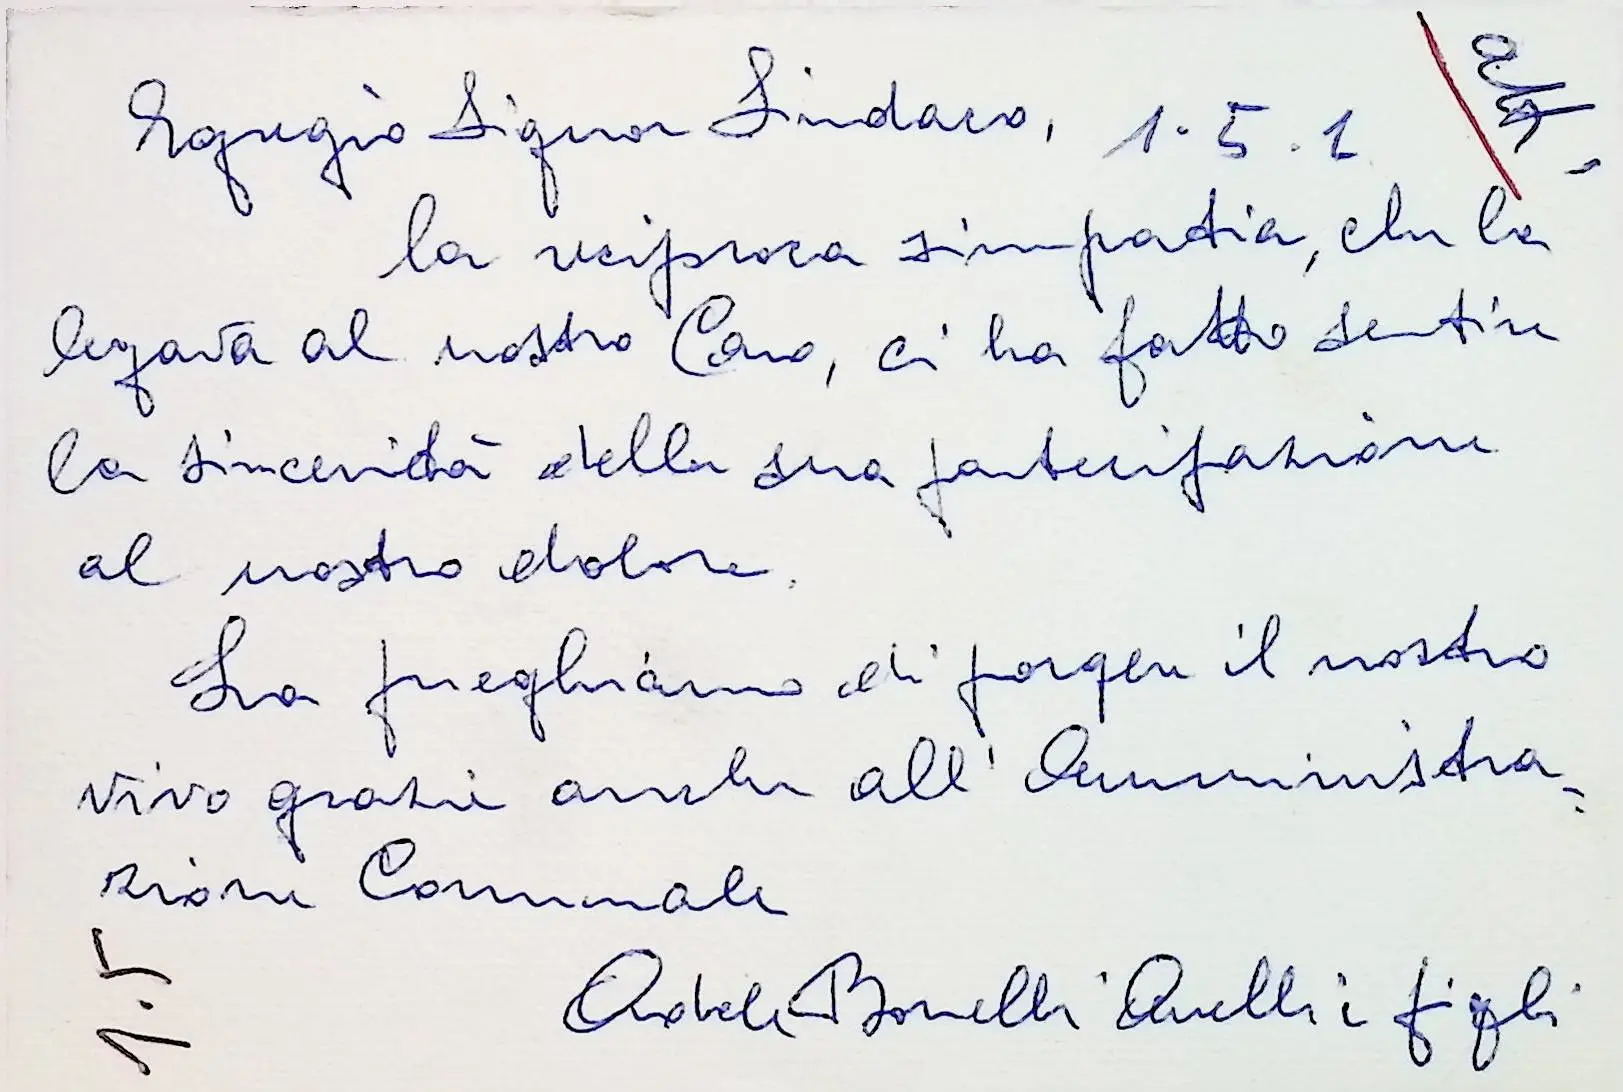 Egregio Signor Sindaco, 1.5.1
la reciproca simpatia, che la
legava al nostro Caro, ci ha fatto sentire
la sincerità della sua partecipazione
al nostro dolore.
La preghiamo di porgere il nostro
vivo grazie anche all'Amministra-
zione Comunale
Adele Bonelli Anelli e figli
1.5